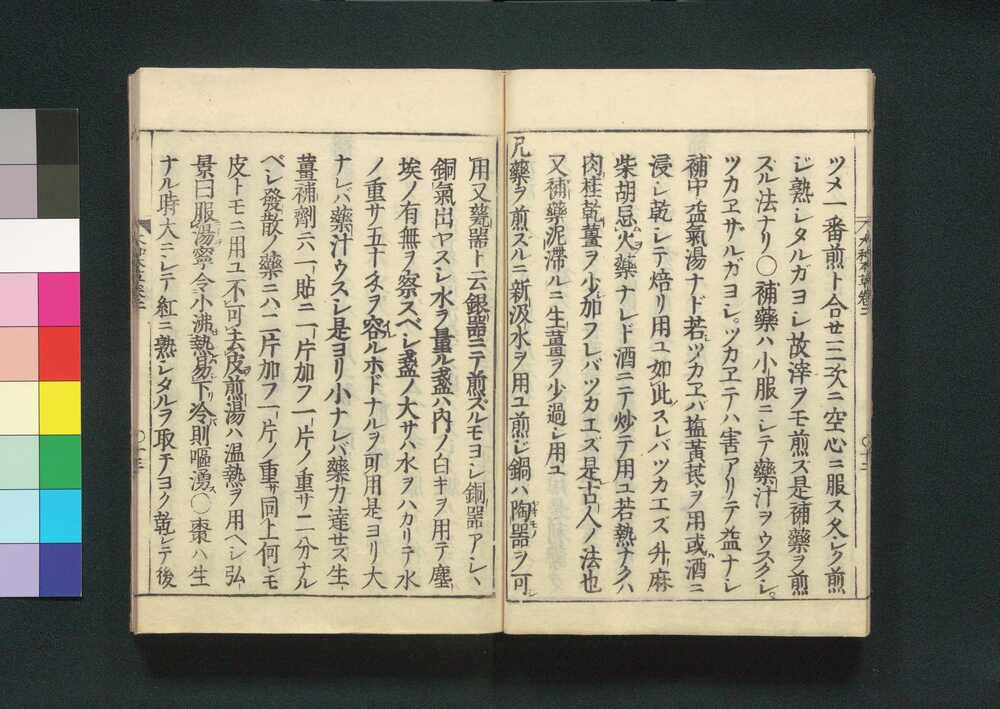 ツメ一番煎ト合セ三次ニ空心ニ服ス久シク煎
ジ熟シタルガヨシ故滓ヲモ煎ズ是補藥ヲ煎
ズル法ナリ〇補藥ハ小服ニシテ藥汁ヲウスクシ
ツカヱザルガヨシツカヱテハ害アリテ益ナシ
補中益氣湯ナド若ツカヱバ搵黃芪ヲ用或酒ニ
浸シ乾シテ焙リ用ユ如此スレバツカエズ升麻
柴胡忌火藥ナレド酒ニテ炒テ用ユ若熱ナクハ
肉桂乾薑ヲ少加フレバツカエズ是古人ノ法也
又補藥泥滯ルニ生薑ヲ少過シ用ユ
凡藥ヲ煎ズルニ新汲水ヲ用ユ煎ジ鍋ハ陶器ヲ可
用又甆器ト云銀器ニテ煎ズルモヨシ銅器アシヽ
銅氣出ヤスシ水ヲ量ル盞ハ內ノ白キヲ用テ塵
埃ノ有無ヲ察スベシ盞ノ大サハ水ヲハカリテ水
ノ重サ五十匁ヲ容ルホドナルヲ可用是ヨリ大
ナレバ藥汁ウスシ是ヨリ小ナレバ藥力達セズ生
薑補劑ニハ一貼ニ一片加フ一片ノ重サ二分ナル
ベシ發散ノ藥ニハ二片加フ一片ノ重サ同上何レモ
皮トモニ用ユ不可去皮煎湯ハ温熱ヲ用ヘシ弘
景曰服湯寧令小沸熱易下冷則嘔湧〇棗ハ生
ナル時大ニシテ紅ニ熟シタルヲ取テヨク乾シテ後